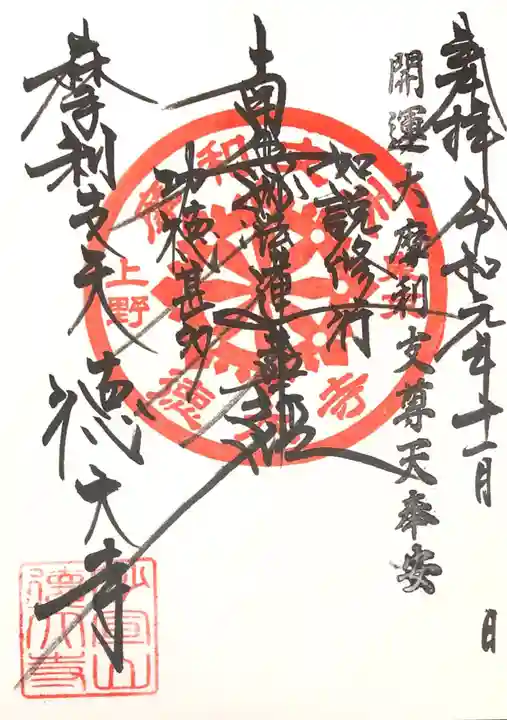 奉拝 令和元年十一月 日
開運大摩利支尊天奉安
如説修行
南無妙法蓮華経
功徳甚多
摩利支天 徳大寺
上野
徳大寺